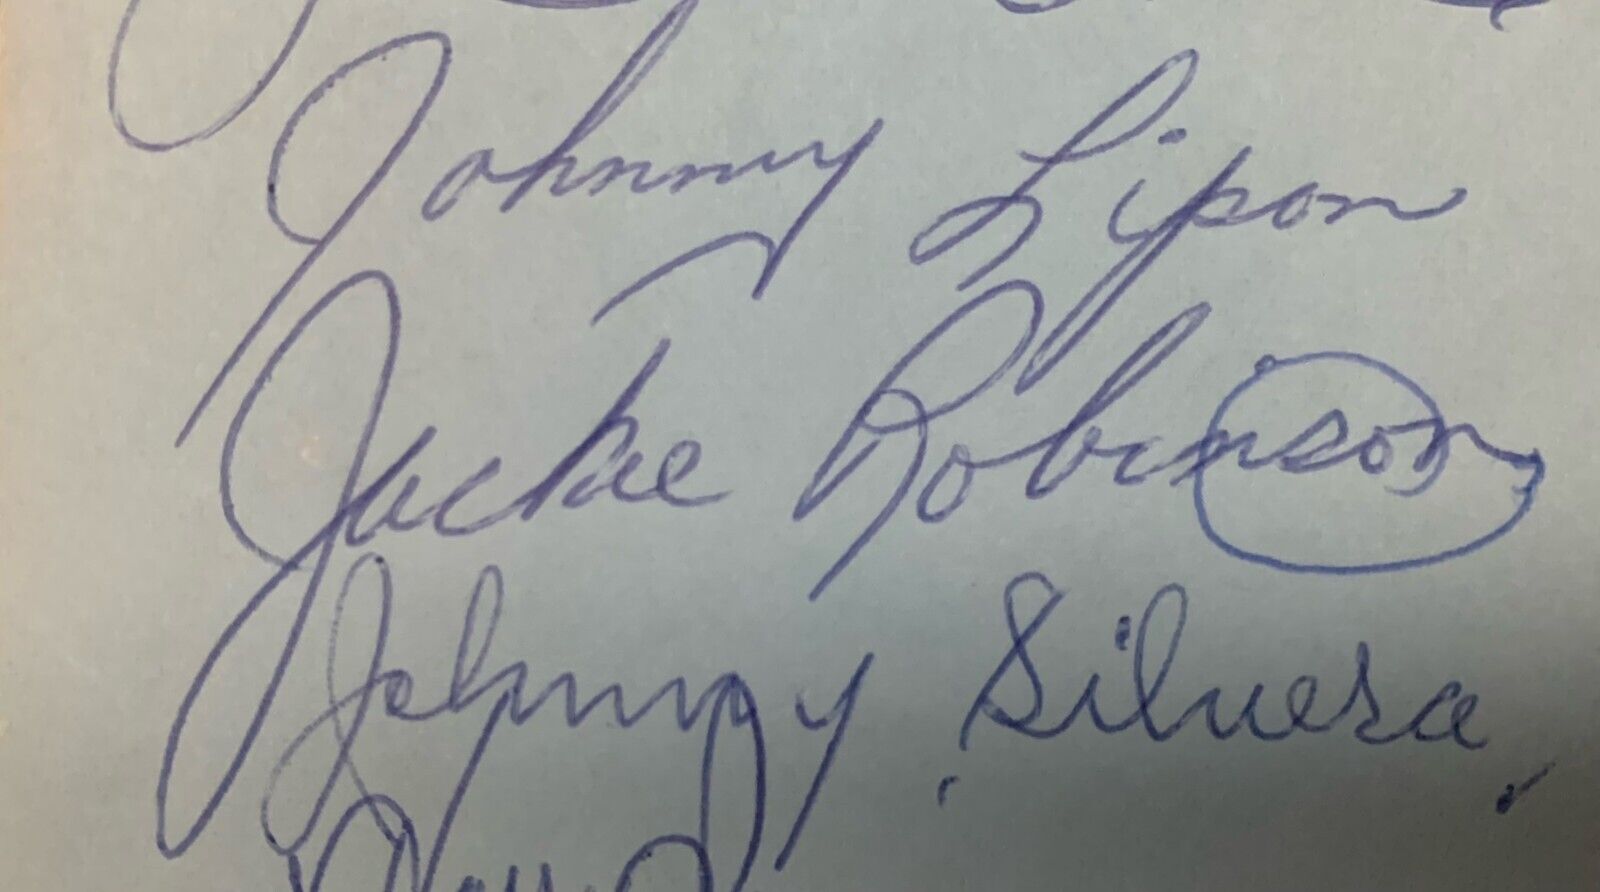 Johnny Lipon
Jackie Robinson
Johnny Silvera